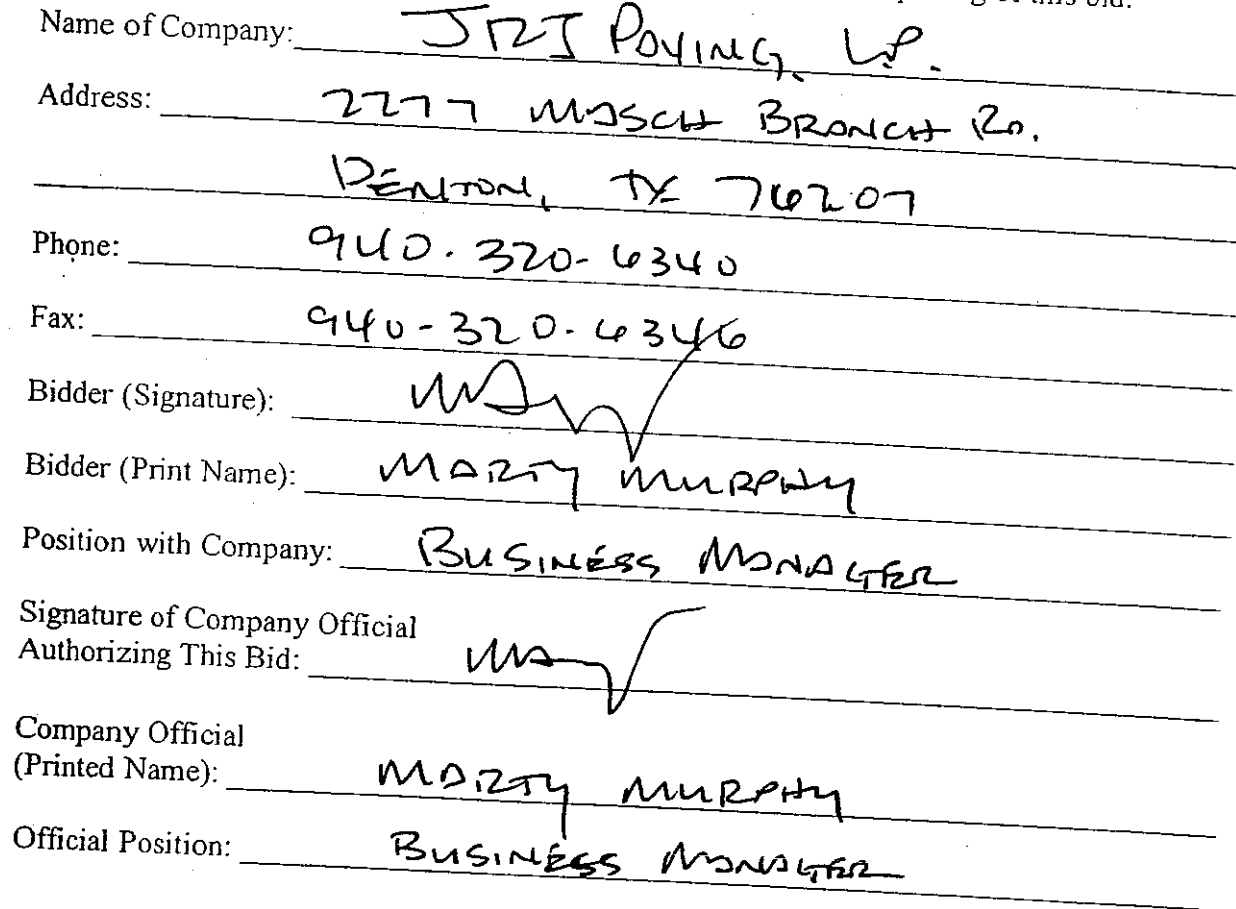 of this bid.
Name of Company: JRJ PAVING, LP.
Address: 2277 MASCH BRANCH RD.
DENTON, TX 76207
Phone: 940.320-6340
Fax: 940-320-6346
Bidder (Signature):
Bidder (Print Name): MARTY MURPHY
Position with Company: BUSINESS MANAGER
Signature of Company Official
Authorizing This Bid:
Company Official
(Printed Name): MARTY MURPHY
Official Position: BUSINESS MANAGER